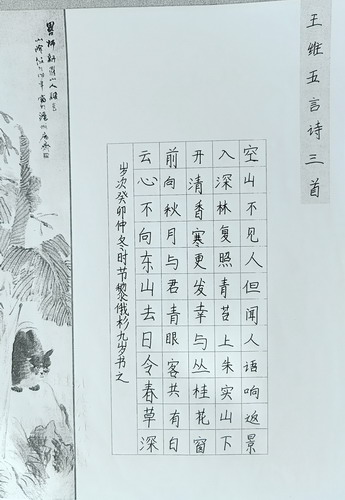 王维五言诗三首
空山不见人但闻人语响返景
入深林复照青苔上朱实山下
开清香寒更发幸与丛桂花窗
前向秋月与君青眼客共有白
云心不向东山去日令春草深
岁次癸卯仲冬时节黎俄杉九岁书之